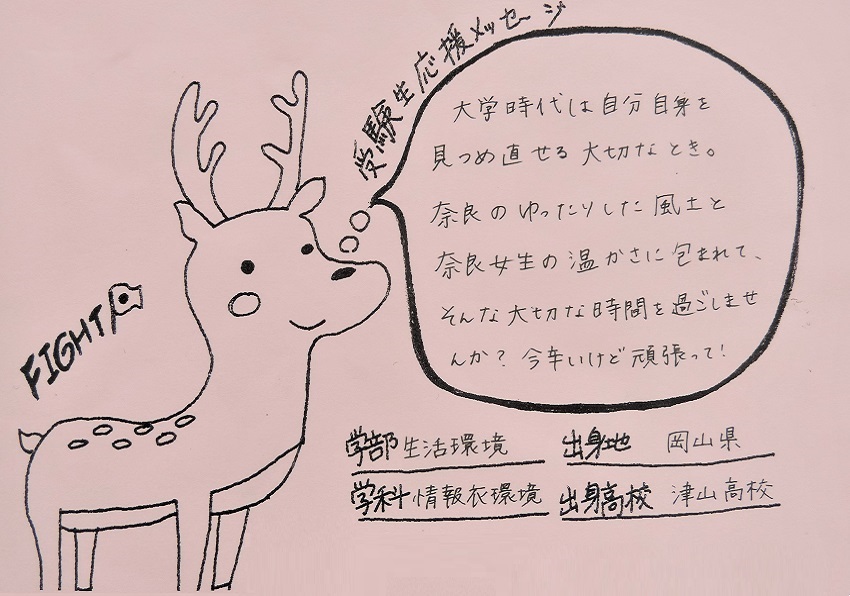 受験生応援メッセージ
大学時代は自分自身を
見つめ直せる大切なとき。
奈良のゆったりした風土と
奈良女生の温かさに包まれて、
そんな大切な時間を過ごしませ
んか？今辛いけど頑張って！
FIGHT
学部 生活環境 出身地 岡山県
学科 情報衣環境 出身高校 津山高校